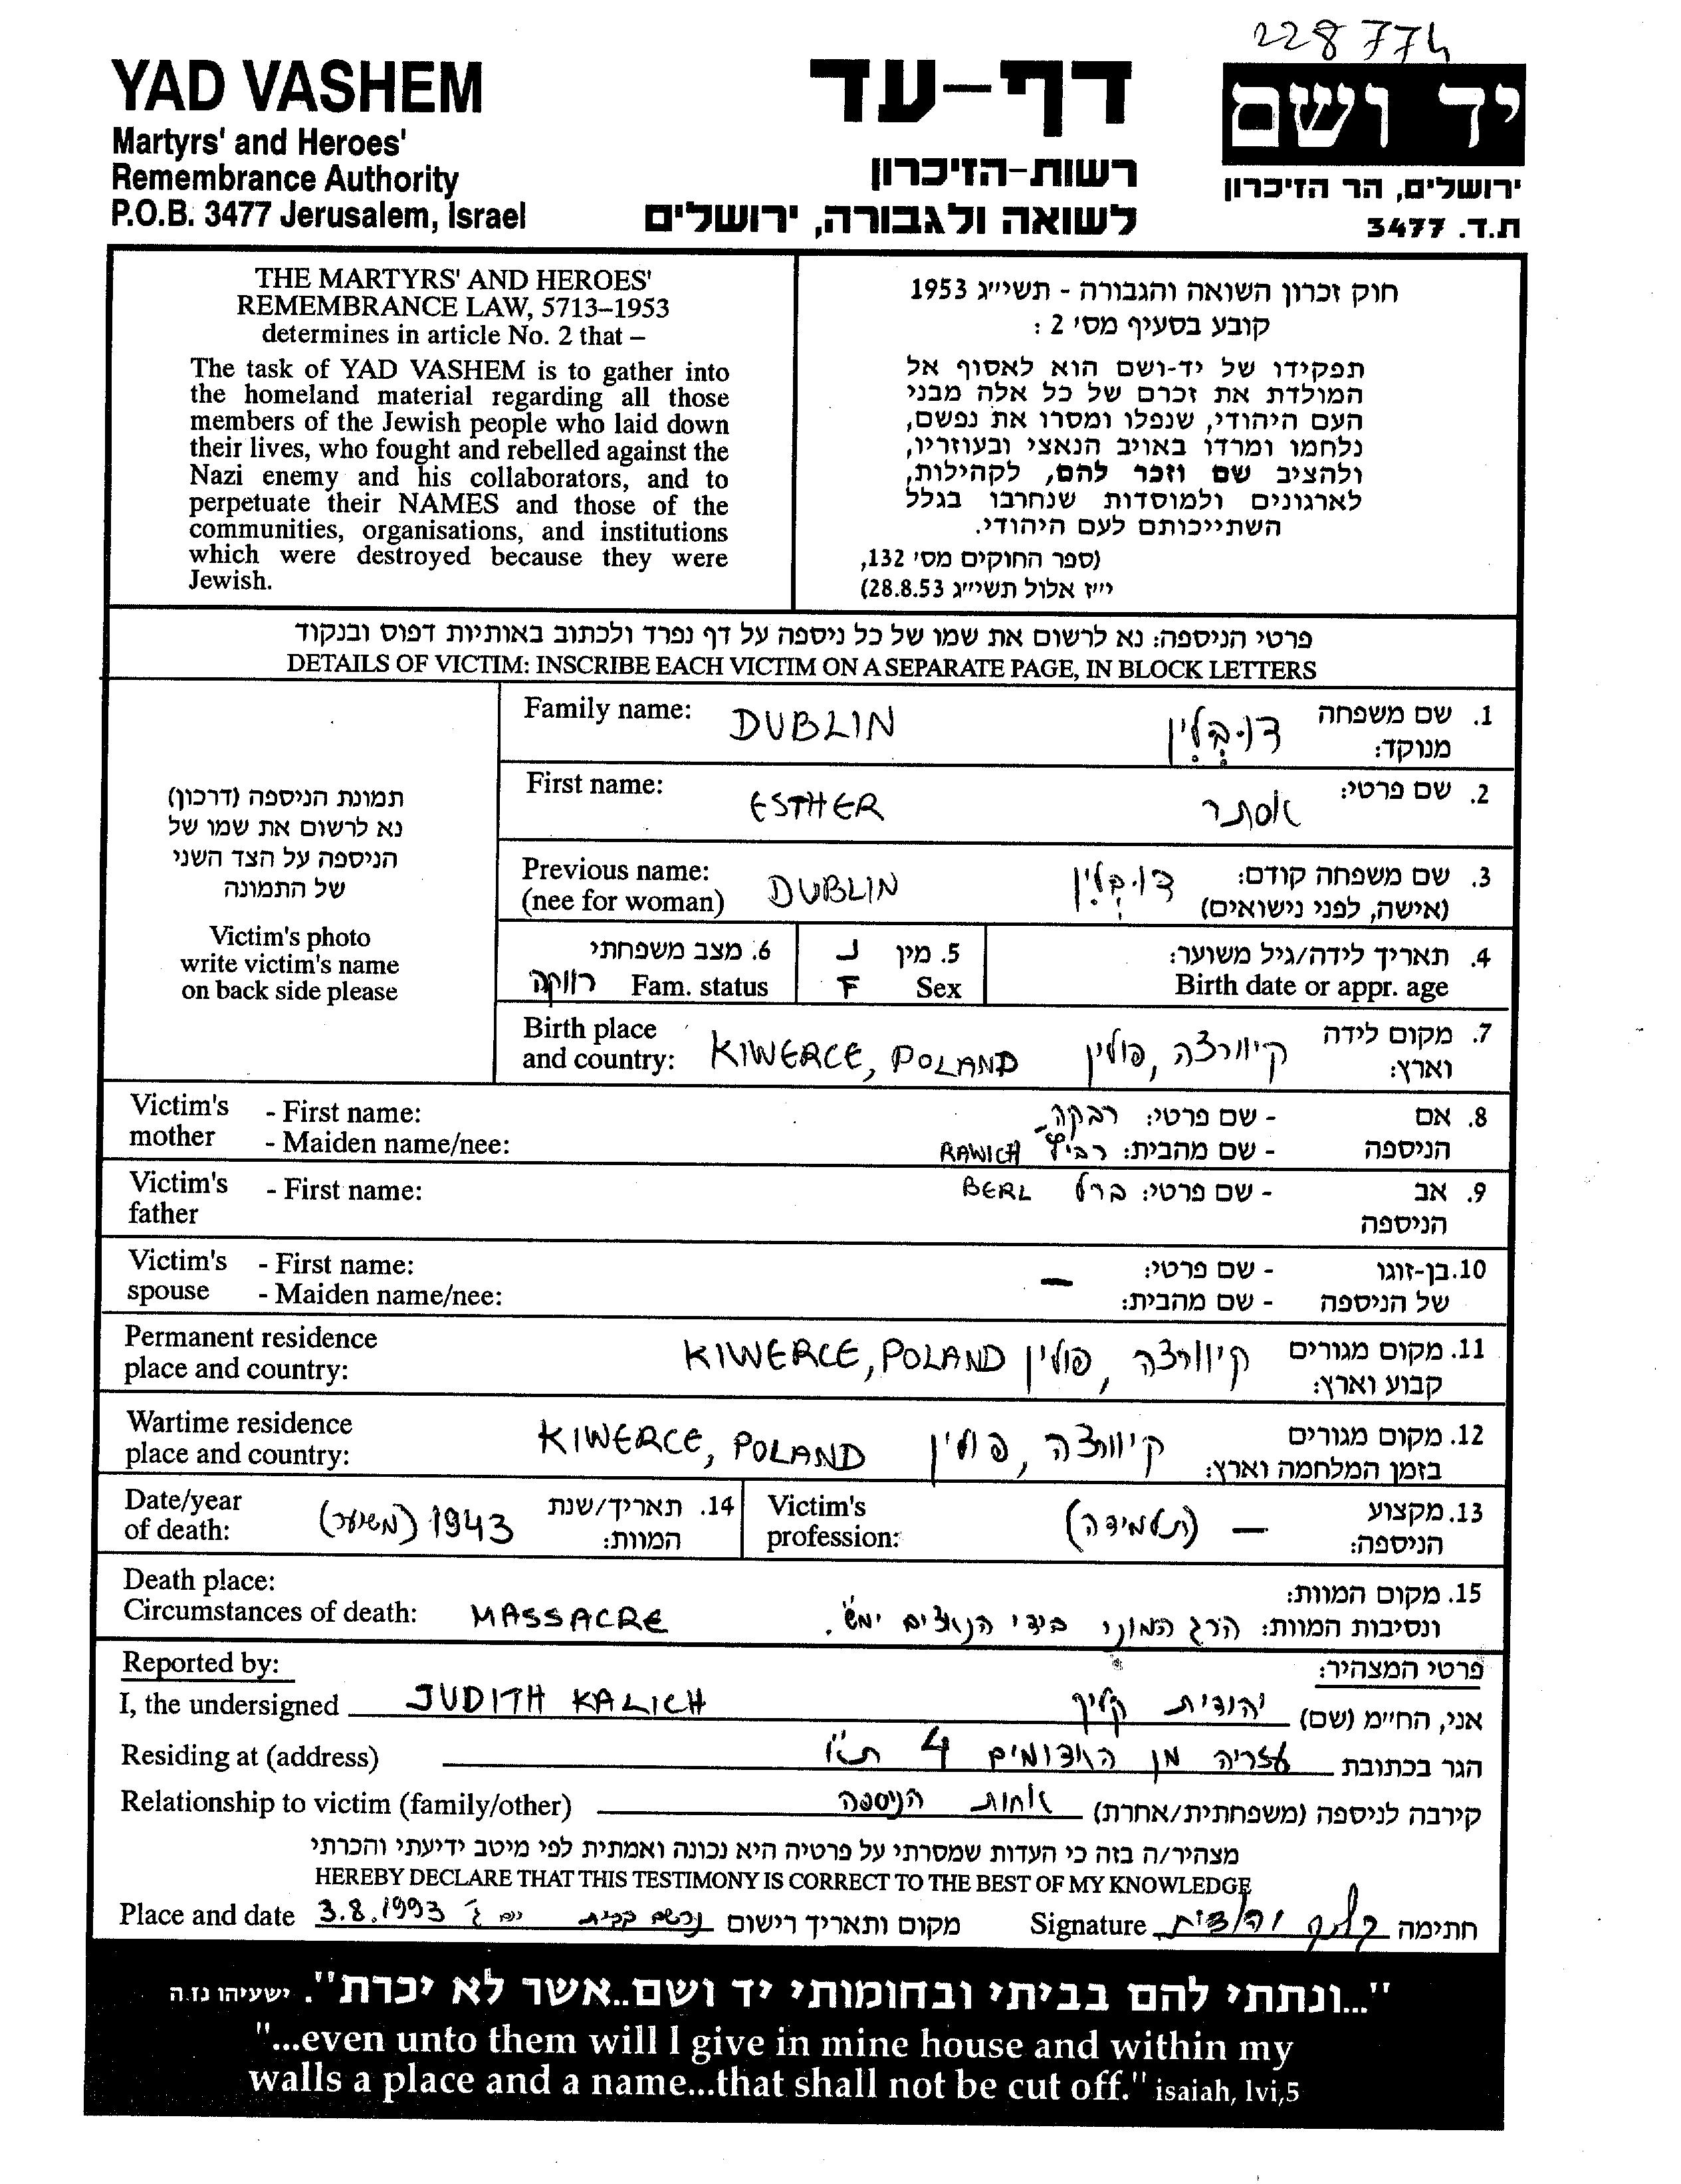 228774
YAD VASHEM
Martyrs' and Heroes'
Remembrance Authority
P.O.B. 3477 Jerusalem, Israel
דף-עד
רשות-הזיכרון
לשואה ולגבורה, ירושלים
יד ושם
ירושלים, הר הזיכרון
ת.ד. 3477
THE MARTYRS' AND HEROES'
REMEMBRANCE LAW, 5713–1953
determines in article No. 2 that –
The task of YAD VASHEM is to gather into
the homeland material regarding all those
members of the Jewish people who laid down
their lives, who fought and rebelled against the
Nazi enemy and his collaborators, and to
perpetuate their NAMES and those of the
communities, organisations, and institutions
which were destroyed because they were
Jewish.
חוק זכרון השואה והגבורה - תשי״ג 1953
קובע בסעיף מס׳ 2 :
תפקידו של יד-ושם הוא לאסוף אל
המולדת את זכרם של כל אלה מבני
העם היהודי, שנפלו ומסרו את נפשם,
נלחמו ומרדו באויב הנאצי ובעוזריו,
ולהציב שם וזכר להם, לקהילות,
לארגונים ולמוסדות שנחרבו בגלל
השתייכותם לעם היהודי.
(ספר החוקים מס׳ 132,
י״ז אלול תשי״ג 28.8.53)
פרטי הניספה: נא לרשום את שמו של כל ניספה על דף נפרד ולכתוב באותיות דפוס ובנקוד
DETAILS OF VICTIM: INSCRIBE EACH VICTIM ON A SEPARATE PAGE, IN BLOCK LETTERS
תמונת הניספה (דרכון)
נא לרשום את שמו של
הניספה על הצד השני
של התמונה
Victim's photo
write victim's name
on back side please
Family name: DUBLIN דובלין 1. שם משפחה
מנוקד:
First name: ESTHER אסתר 2. שם פרטי:
Previous name: DUBLIN דובלין 3. שם משפחה קודם:
(nee for woman) (אישה, לפני נישואים)
6. מצב משפחתי 5. מין נ 4. תאריך לידה/גיל משוער:
רווקה Fam. status F Sex Birth date or appr. age
Birth place קיוורצה, פולין 7. מקום לידה
and country: KIWERCE, POLAND וארץ:
Victim's - First name: רבקה - שם פרטי: 8. אם
mother - Maiden name/nee: RAWICH רביץ - שם מהבית: הניספה
Victim's - First name: BERL ברל - שם פרטי: 9. אב
father הניספה
Victim's - First name: - שם פרטי: 10. בן-זוגו
spouse - Maiden name/nee: — - שם מהבית: של הניספה
Permanent residence 11. מקום מגורים
place and country: KIWERCE, POLAND קיוורצה, פולין קבוע וארץ:
Wartime residence 12. מקום מגורים
place and country: KIWERCE, POLAND קיוורצה, פולין בזמן המלחמה וארץ:
Date/year 1943 (משוער) 14. תאריך/שנת Victim's — (תלמידה) 13. מקצוע
of death: המוות: profession: הניספה:
Death place: 15. מקום המוות:
Circumstances of death: MASSACRE הרג המוני בידי הנאצים ימ״ש. ונסיבות המוות:
Reported by: פרטי המצהיר:
I, the undersigned JUDITH KALICH יהודית קליך אני, החי״מ (שם)
Residing at (address) עזריה מן האדומים 4 ת״א הגר בכתובת
Relationship to victim (family/other) אחות הניספה קירבה לניספה (משפחתית/אחרת)
מצהיר/ה בזה כי העדות שמסרתי על פרטיה היא נכונה ואמתית לפי מיטב ידיעתי והכרתי
HEREBY DECLARE THAT THIS TESTIMONY IS CORRECT TO THE BEST OF MY KNOWLEDGE
Place and date 3.8.1993 יום ג׳ מקום ותאריך רישום Signature קליך יהודית חתימה
"...ונתתי להם בביתי ובחומותי יד ושם..אשר לא יכרת". ישעיהו נז.ה
"...even unto them will I give in mine house and within my
walls a place and a name...that shall not be cut off." isaiah, lvi,5